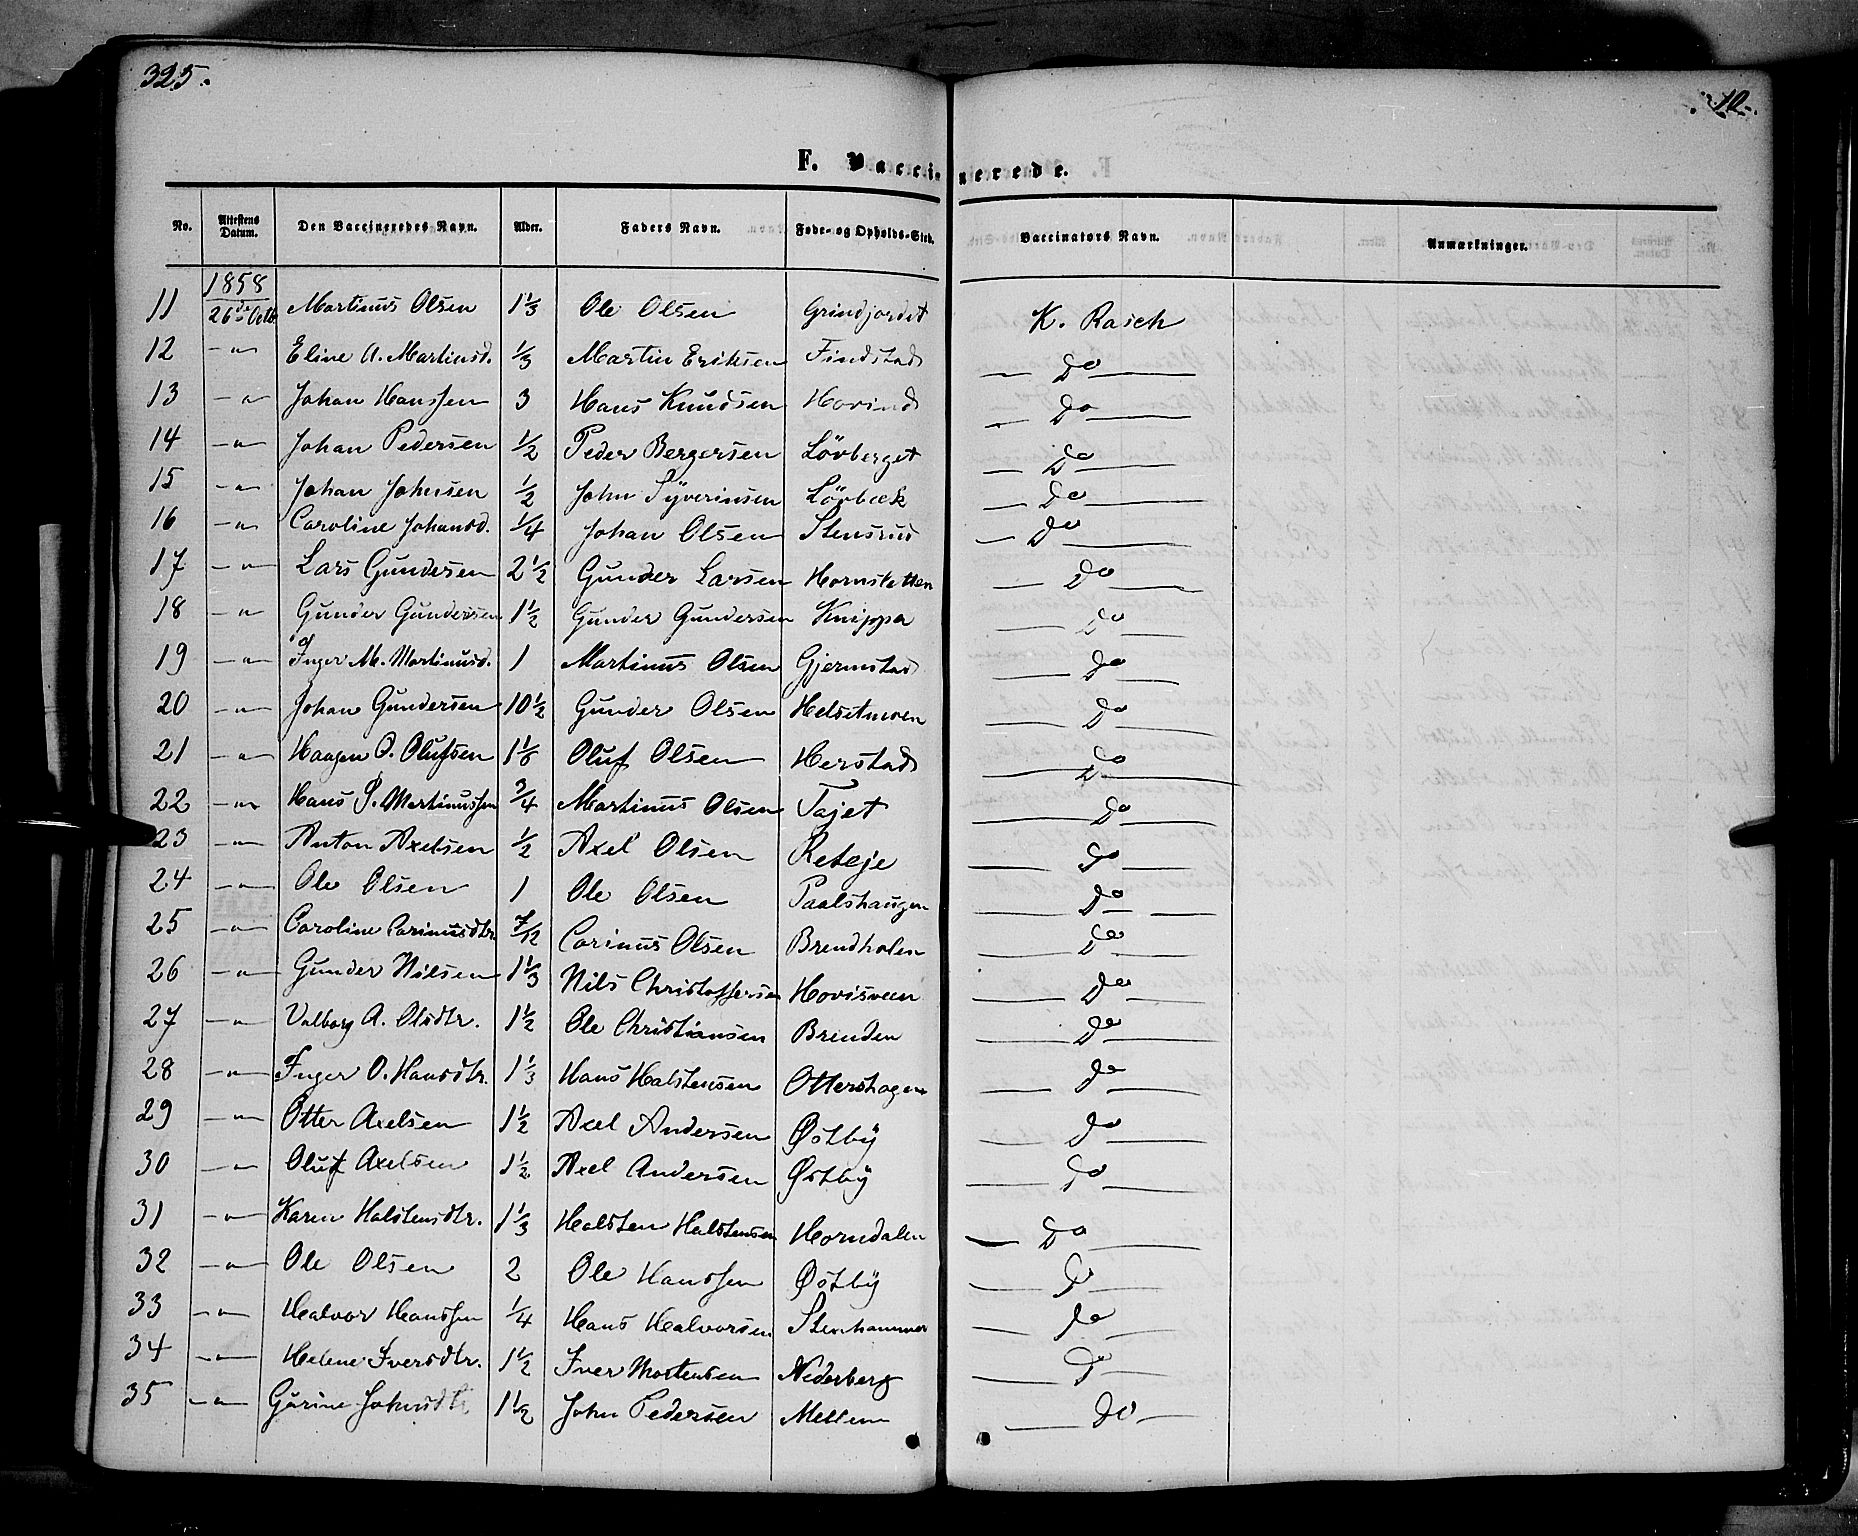 325.
10.
F. Vaccinerede.
No. Attestens Datum. Den Vaccineredes Navn. Alder. Faders Navn. Føde- og Opholds-Sted. Vaccinators Navn. Anmærkninger.
1858
11 26de Octb. Martinus Olsen 1 1/3 Ole Olsen Grindjordet K. Rasch
12 —"— Eline A. Martinsd. 1/3 Martin Eriksen Findstad — Do —
13 —"— Johan Hanssen 3 Hans Knudsen Hovind — Do —
14 —"— Johan Pedersen 1/2 Peder Bergersen Lövberget — Do —
15 —"— Johan Johnsen 1/2 John Syverinsen Lörbæk — Do —
16 —"— Caroline Johansd. 1/4 Johan Olsen Stensrud — Do —
17 —"— Lars Gundersen 2 1/2 Gunder Larsen Hornsletten — Do —
18 —"— Gunder Gundersen 1 1/2 Gunder Gundersen Knippa — Do —
19 —"— Inger M. Martinusd. 1 Martinus Olsen Gjermstad — Do —
20 —"— Johan Gundersen 10 1/2 Gunder Olsen Helsetmoen — Do —
21 —"— Haagen O. Olufsen 1 1/6 Oluf Olsen Herstad — Do —
22 —"— Hans P. Martinussen 3/4 Martinus Olsen Tajet — Do —
23 —"— Anton Axelsen 1/2 Axel Olsen — Do —
24 —"— Ole Olsen 1 Ole Olsen Paalshaugen — Do —
25 —"— Caroline Carinusdtr 7/12 Carinus Olsen Brendholen — Do —
26 —"— Gunder Nilsen 1 1/3 Nils Christoffersen Hovisveen — Do —
27 —"— Valborg A. Olsdtr. 1 1/2 Ole Christiansen Brenden — Do —
28 —"— Inger O. Hansdtr. 1 1/3 Hans Halstensen Ottershagen — Do —
29 —"— Otter Axelsen 1 1/2 Axel Andersen Østbÿ — Do —
30 —"— Oluf Axelsen 1 1/2 Axel Andersen Østbÿ — Do —
31 —"— Karen Halstensdtr. 1 1/3 Halsten Halstensen Horndalen — Do —
32 —"— Ole Olsen 2 Ole Hanssen Østbÿ — Do —
33 —"— Halvor Hanssen 1/4 Hans Halvorsen Stenhammer — Do —
34 —"— Helene Iversdtr. 1 1/2 Iver Mortensen Nederberg — Do —
35 —"— Gurine Johnsdtr 1 1/2 John Pedersen Mellem — Do —